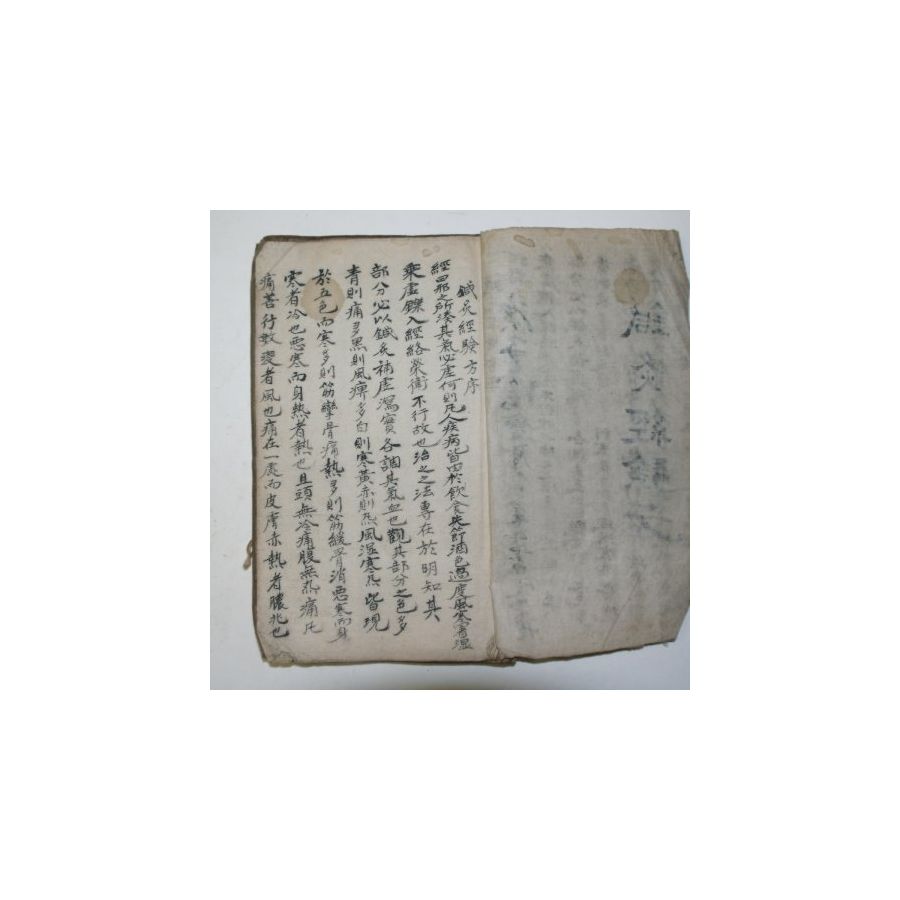 鍼灸經驗方
鍼灸經驗方序
經曰邪之所湊其氣必虛何則凡人疾病皆由於飲食失節酒色過度風寒暑湿
乗虛鑠入經絡榮衛不行故也治之之法專在於明知其
部分必以鍼灸補虛瀉實各調其氣血也觀其部分之色多
青則痛多黑則風痹多白則寒黃赤則热風湿寒热皆現
於五色而寒多則筋攣骨痛熱多則筋緩骨消悪寒而身
寒者冷也悪寒而身熱者熱也且頭無冷痛腹無热痛凡
痛苦行數変者風也痛在一處而皮膚赤熱者膿兆也